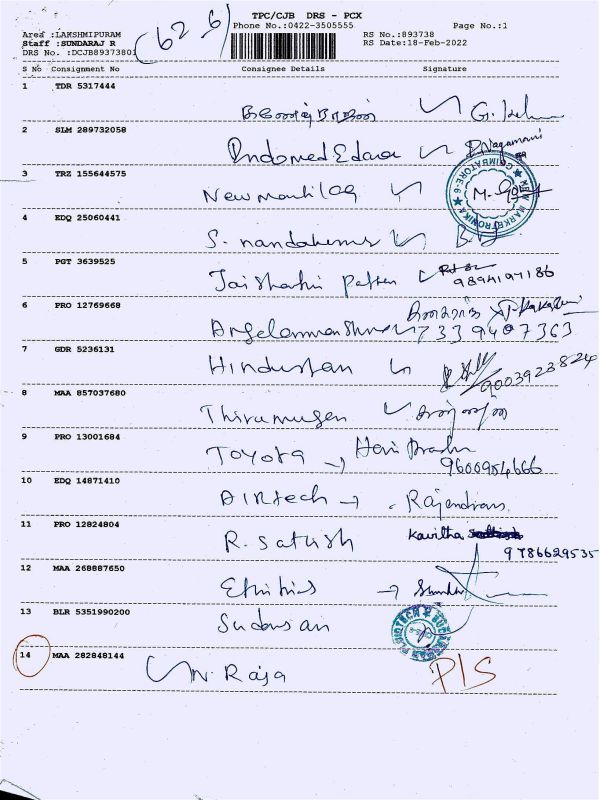 TPC/CJB DRS - PCX
Phone No.:0422-3505555 Page No.:1
Area :LAKSHMIPURAM RS No.:893738
Staff :SUNDARAJ R RS Date:18-Feb-2022
DRS No. :DCJB89373801
(62_6)
S No Consignment No Consignee Details Signature
1 TDR 5317444
G.
2 SLM 289732058
P. Nagamani
3 TRZ 155644575
COIMBATORE-6 NEW MARKETRONIKA M.
4 EDQ 25060441
S. nandakumar
5 PGT 3639525
9894197186
6 PRO 12769668
7339407363
7 GDR 5236131
Hindustan 9003923824
8 MAA 857037680
Thirumugan
9 PRO 13001684
TOYOTA Hari
9600954666
10 EDQ 14871410
AIRtech Rajendran
11 PRO 12824804
R. Satish Kavitha
9786629535
12 MAA 268887650
13 BLR 5351990200
Sudarsan
14 MAA 282848144
N. Raja P/S